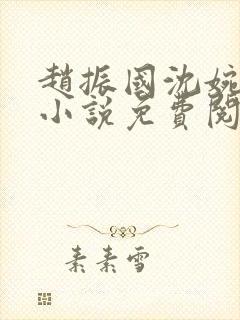 趙振國沈婉
小說免費閱
素素雪